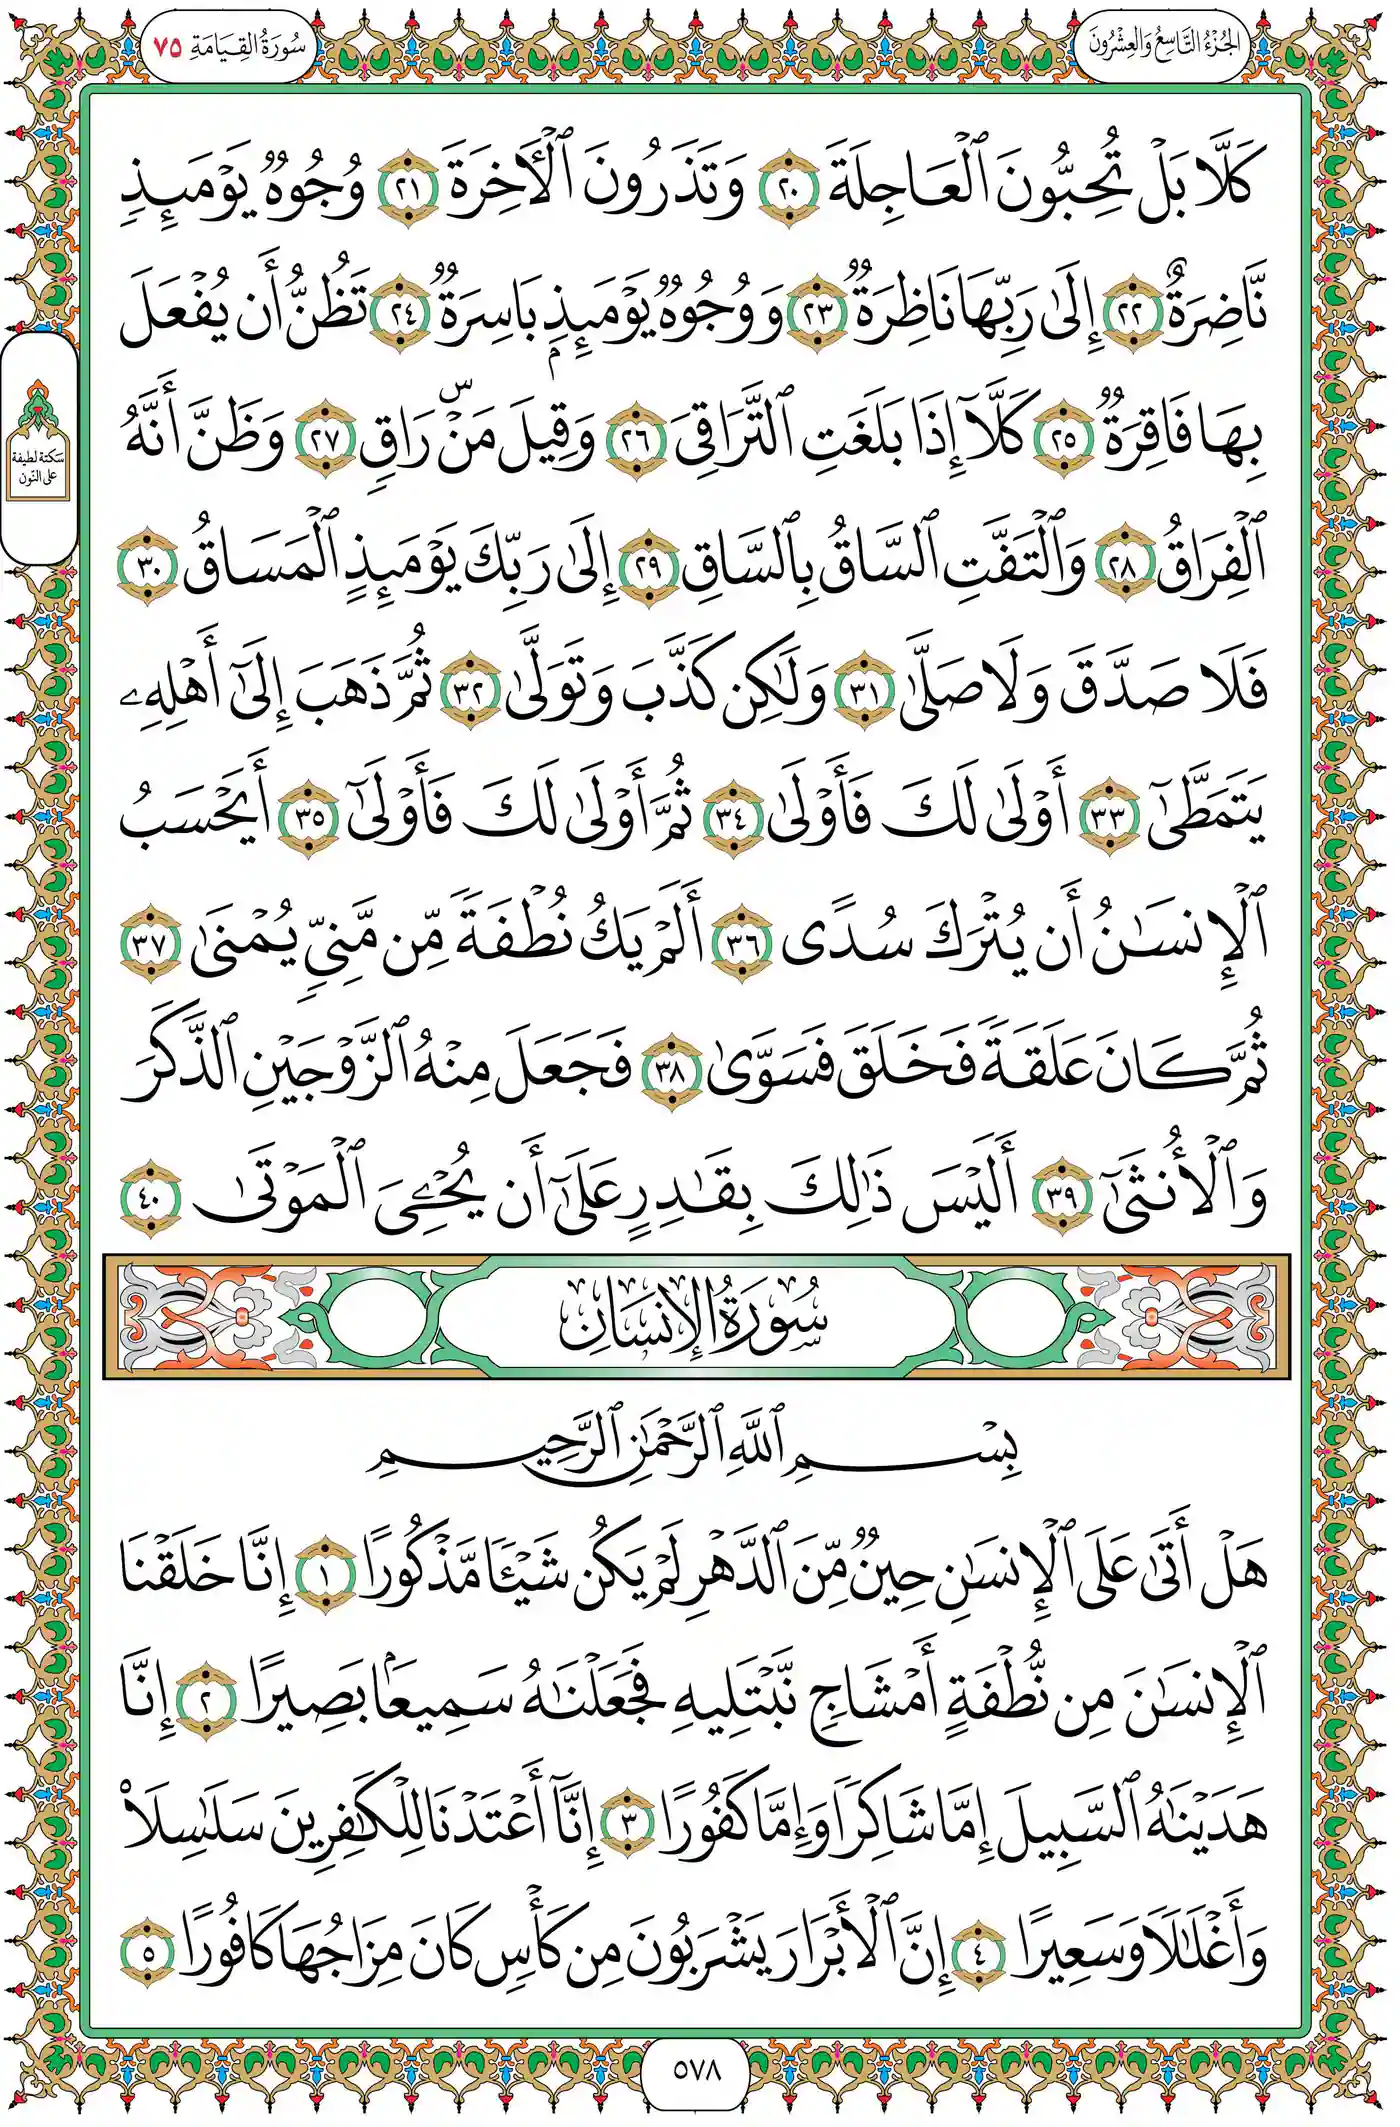 الجزء التاسع والعشرون
سورة القيامة ٧٥
كَلَّا بَلْ تُحِبُّونَ ٱلْعَاجِلَةَ ٢٠ وَتَذَرُونَ ٱلْأَخِرَةَ ٢١ وُجُوهٌ يَوْمَئِذٍ
نَّاضِرَةٌ ٢٢ إِلَىٰ رَبِّهَا نَاظِرَةٌ ٢٣ وَوُجُوهٌ يَوْمَئِذٍۭ بَاسِرَةٌ ٢٤ تَظُنُّ أَن يُفْعَلَ
بِهَا فَاقِرَةٌ ٢٥ كَلَّآ إِذَا بَلَغَتِ ٱلتَّرَاقِىَ ٢٦ وَقِيلَ مَنْۜ رَاقٍ ٢٧ وَظَنَّ أَنَّهُ
سكتة لطيفة
على النون
ٱلْفِرَاقُ ٢٨ وَٱلْتَفَّتِ ٱلسَّاقُ بِٱلسَّاقِ ٢٩ إِلَىٰ رَبِّكَ يَوْمَئِذٍ ٱلْمَسَاقُ ٣٠
فَلَا صَدَّقَ وَلَا صَلَّىٰ ٣١ وَلَٰكِن كَذَّبَ وَتَوَلَّىٰ ٣٢ ثُمَّ ذَهَبَ إِلَىٰٓ أَهْلِهِۦ
يَتَمَطَّىٰٓ ٣٣ أَوْلَىٰ لَكَ فَأَوْلَىٰ ٣٤ ثُمَّ أَوْلَىٰ لَكَ فَأَوْلَىٰٓ ٣٥ أَيَحْسَبُ
ٱلْإِنسَٰنُ أَن يُتْرَكَ سُدًى ٣٦ أَلَمْ يَكُ نُطْفَةً مِّن مَّنِىٍّ يُمْنَىٰ ٣٧
ثُمَّ كَانَ عَلَقَةً فَخَلَقَ فَسَوَّىٰ ٣٨ فَجَعَلَ مِنْهُ ٱلزَّوْجَيْنِ ٱلذَّكَرَ
وَٱلْأُنثَىٰٓ ٣٩ أَلَيْسَ ذَٰلِكَ بِقَٰدِرٍ عَلَىٰٓ أَن يُحْـِۧىَ ٱلْمَوْتَىٰ ٤٠
سُورَةُ الإِنسَانِ
بِسْمِ ٱللَّهِ ٱلرَّحْمَٰنِ ٱلرَّحِيمِ
هَلْ أَتَىٰ عَلَى ٱلْإِنسَٰنِ حِينٌ مِّنَ ٱلدَّهْرِ لَمْ يَكُن شَيْـًٔا مَّذْكُورًا ١ إِنَّا خَلَقْنَا
ٱلْإِنسَٰنَ مِن نُّطْفَةٍ أَمْشَاجٍ نَّبْتَلِيهِ فَجَعَلْنَٰهُ سَمِيعًۢا بَصِيرًا ٢ إِنَّا
هَدَيْنَٰهُ ٱلسَّبِيلَ إِمَّا شَاكِرًا وَإِمَّا كَفُورًا ٣ إِنَّآ أَعْتَدْنَا لِلْكَٰفِرِينَ سَلَٰسِلَا۟
وَأَغْلَٰلًا وَسَعِيرًا ٤ إِنَّ ٱلْأَبْرَارَ يَشْرَبُونَ مِن كَأْسٍ كَانَ مِزَاجُهَا كَافُورًا ٥
٥٧٨